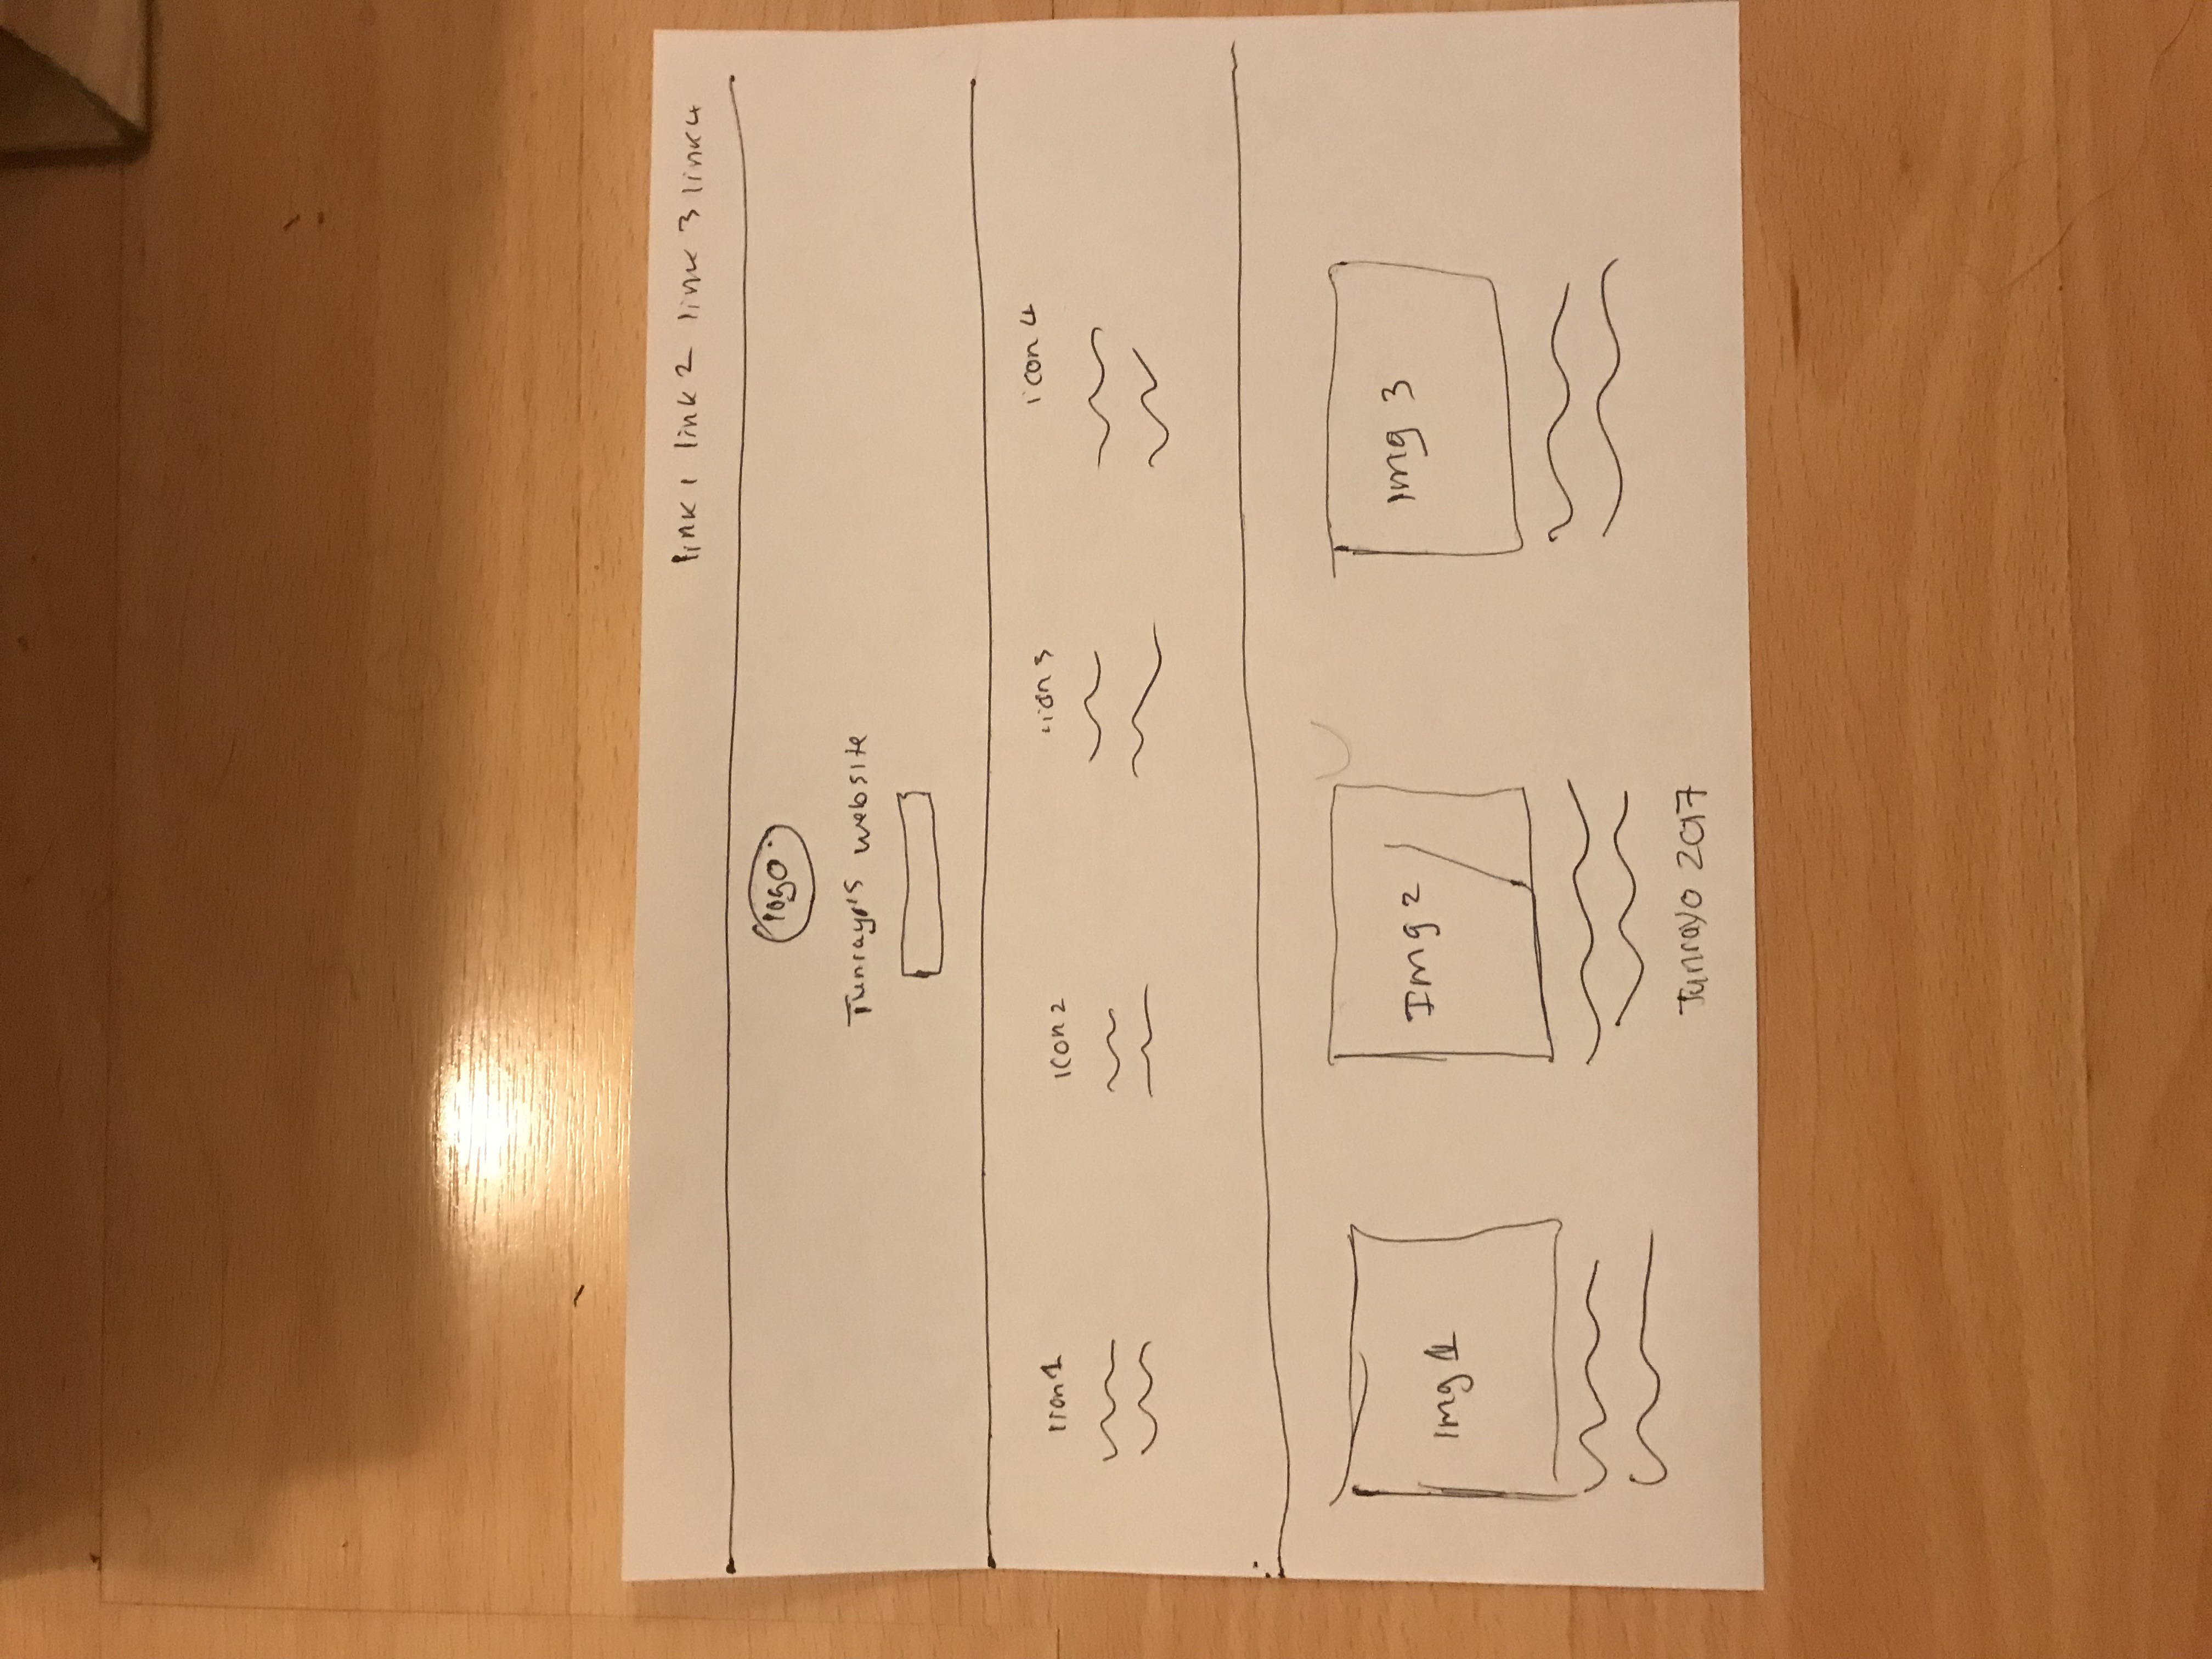 link 1 link 2 link 3 link 4
logo
Tunrayo's website
icon 1 icon 2 icon 3 icon 4
img 1 Img 2 img 3
Tunrayo 2017